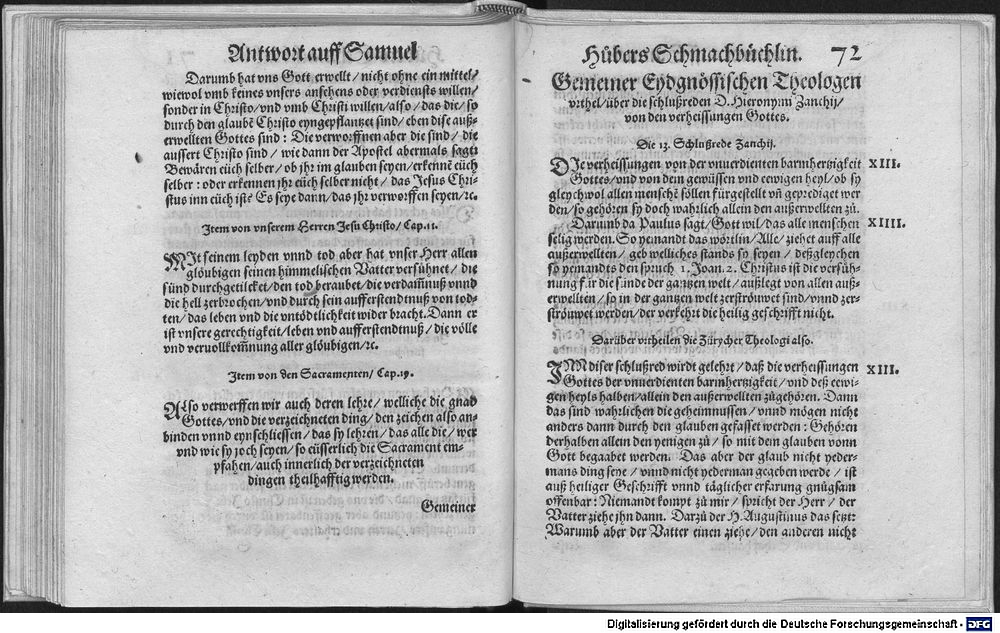 Antwort auff Samuel
Darumb hat vns Gott erwellt / nicht ohne ein mittel /
wiewol vmb keines vnsers ansehens oder verdiensts willen /
sonder in Christo / vnd vmb Christi willen / also / das die / so
durch den glaubē Christo eyngepflantzet sind / eben dise auß-
erwellten Gottes sind : Die verworffnen aber die sind / die
aussert Christo sind / wie dann der Apostel abermals sagt:
Bewären eüch selber / ob jhr im glauben seyen / erkennē eüch
selber : oder erkennen jhr eüch selber nicht / das Jesus Chri-
stus inn eüch ist? Es seye dann / das jhr verworffen seyen / ꝛc.
Item von vnserem Herren Jesu Christo / Cap. 11.
MIt seinem leyden vnnd tod aber hat vnser Herr allen
glöubigen seinen himmelischen Vatter versühnet / die
sünd durchgetilcket / den tod beraubet / die verdamnuß vnnd
die hell zerbrochen / vnd durch sein aufferstendtnuß von tod-
ten / das leben vnd die vntödtlichkeit wider bracht. Dann er
ist vnsere gerechtigkeit / leben vnd aufferstendtnuß / die völle
vnd vervollkom̃nung aller glöubigen / ꝛc.
Item von den Sacramenten / Cap. 19.
ALso verwerffen wir auch deren lehre / welliche die gnad
Gottes / vnd die verzeichneten ding / den zeichen also an-
binden vnnd eynschliessen / das sy lehren / das alle die / wer
vnd wie sy joch seyen / so eüsserlich die Sacrament em-
pfahen / auch innerlich der verzeichneten
dingen theilhafftig werden.
Gemeiner
Hübers Schmachbüchlin. 72
Gemeiner Eydgnössischen Theologen
vrthel / über die schlußreden D. Hieronymi Zanchij /
von den verheissungen Gottes.
Die 13. Schlußrede Zanchij.
DIe verheissungen von der vnuerdienten barmhertzigkeit XIII.
Gottes / vnd von dem gewüssen vnd eewigen heyl / ob sy
gleychwol allen menschē söllen fürgestellt vñ geprediget wer
den / so gehören sy doch wahrlich allein den außerwellten zů.
Darumb da Paulus sagt / Gott wil / das alle menschen XIIII.
selig werden. So yemandt das wörtlin / Alle / ziehet auff alle
außerwellten / geb welliches stands sy seyen / deßgleychen
so yemandts den spruch 1. Joan. 2. Christus ist die versüh-
nung für die sünde der gantzen welt / außlegt von allen auß-
erwellten / so in der gantzen welt zerströuwet sind / vnnd zer-
ströuwet werden / der verkehrt die heilig geschrifft nicht.
Darüber vrtheilen die Zürycher Theologi also.
INn diser schlußred wirdt gelehrt / daß die verheissungen XII.
Gottes der vnuerdienten barmhertzigkeit / vnd deß eewi-
gen heyls halben / allein den außerwellten zůgehören. Dann
das sind wahrlichen die geheimnussen / vnnd mögen nicht
anders dann durch den glauben gefasset werden : Gehören
derhalben allein den yenigen zů / so mit dem glauben vonn
Gott begaabet werden. Das aber der glaub nicht yeder-
mans ding seye / vnnd nicht yederman gegeben werde / ist
auß heiliger Geschrifft vnnd täglicher erfarung gnůgsam
offenbar : Niemandt kompt zů mir / spricht der Herr / der
Vatter ziehe jhn dann. Darzů der H. Augustinus das setzt:
Warumb aber der Vatter einen ziehe / den anderen nicht
Digitalisierung gefördert durch die Deutsche Forschungsgemeinschaft - DFG